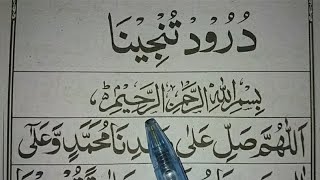 دُرُوْد تُنْجِيْنَا
بِسْمِ اللهِ الرَّحْمٰنِ الرَّحِيْمِ
اَللّٰهُمَّ صَلِّ عَلٰى سَيِّدِنَا مُحَمَّدٍ وَّعَلٰٓى